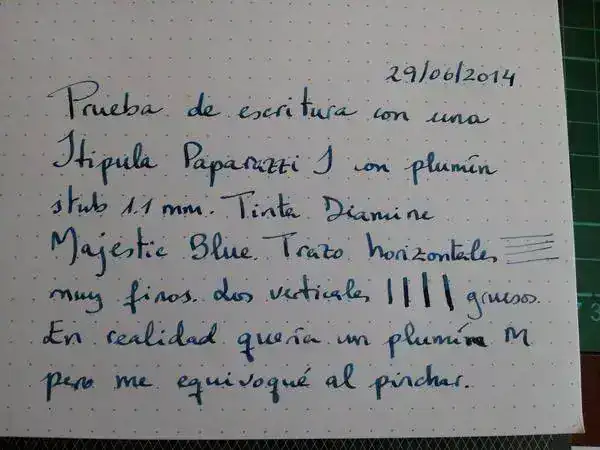 29/06/2014
Prueba de escritura con una
Stipula Paparazzi J con plumín
stub 1.1 mm. Tinta Diamine
Majestic Blue. Trazo horizontales
muy finos. los verticales gruesos.
En realidad quería un plumín M
pero me equivoqué al pinchar.